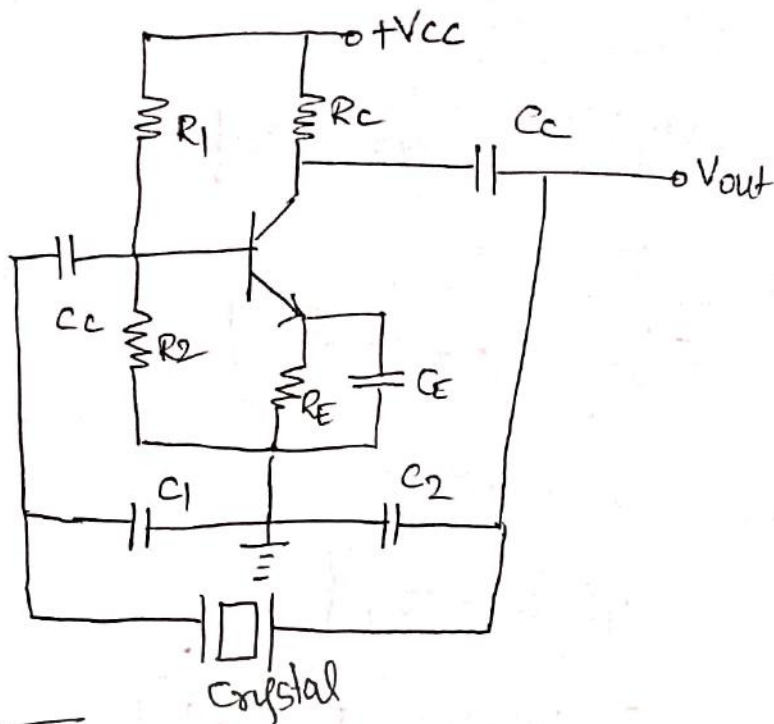 +VCC
R1
RC
CC
Vout
CC
R2
RE
CE
C1
C2
Crystal